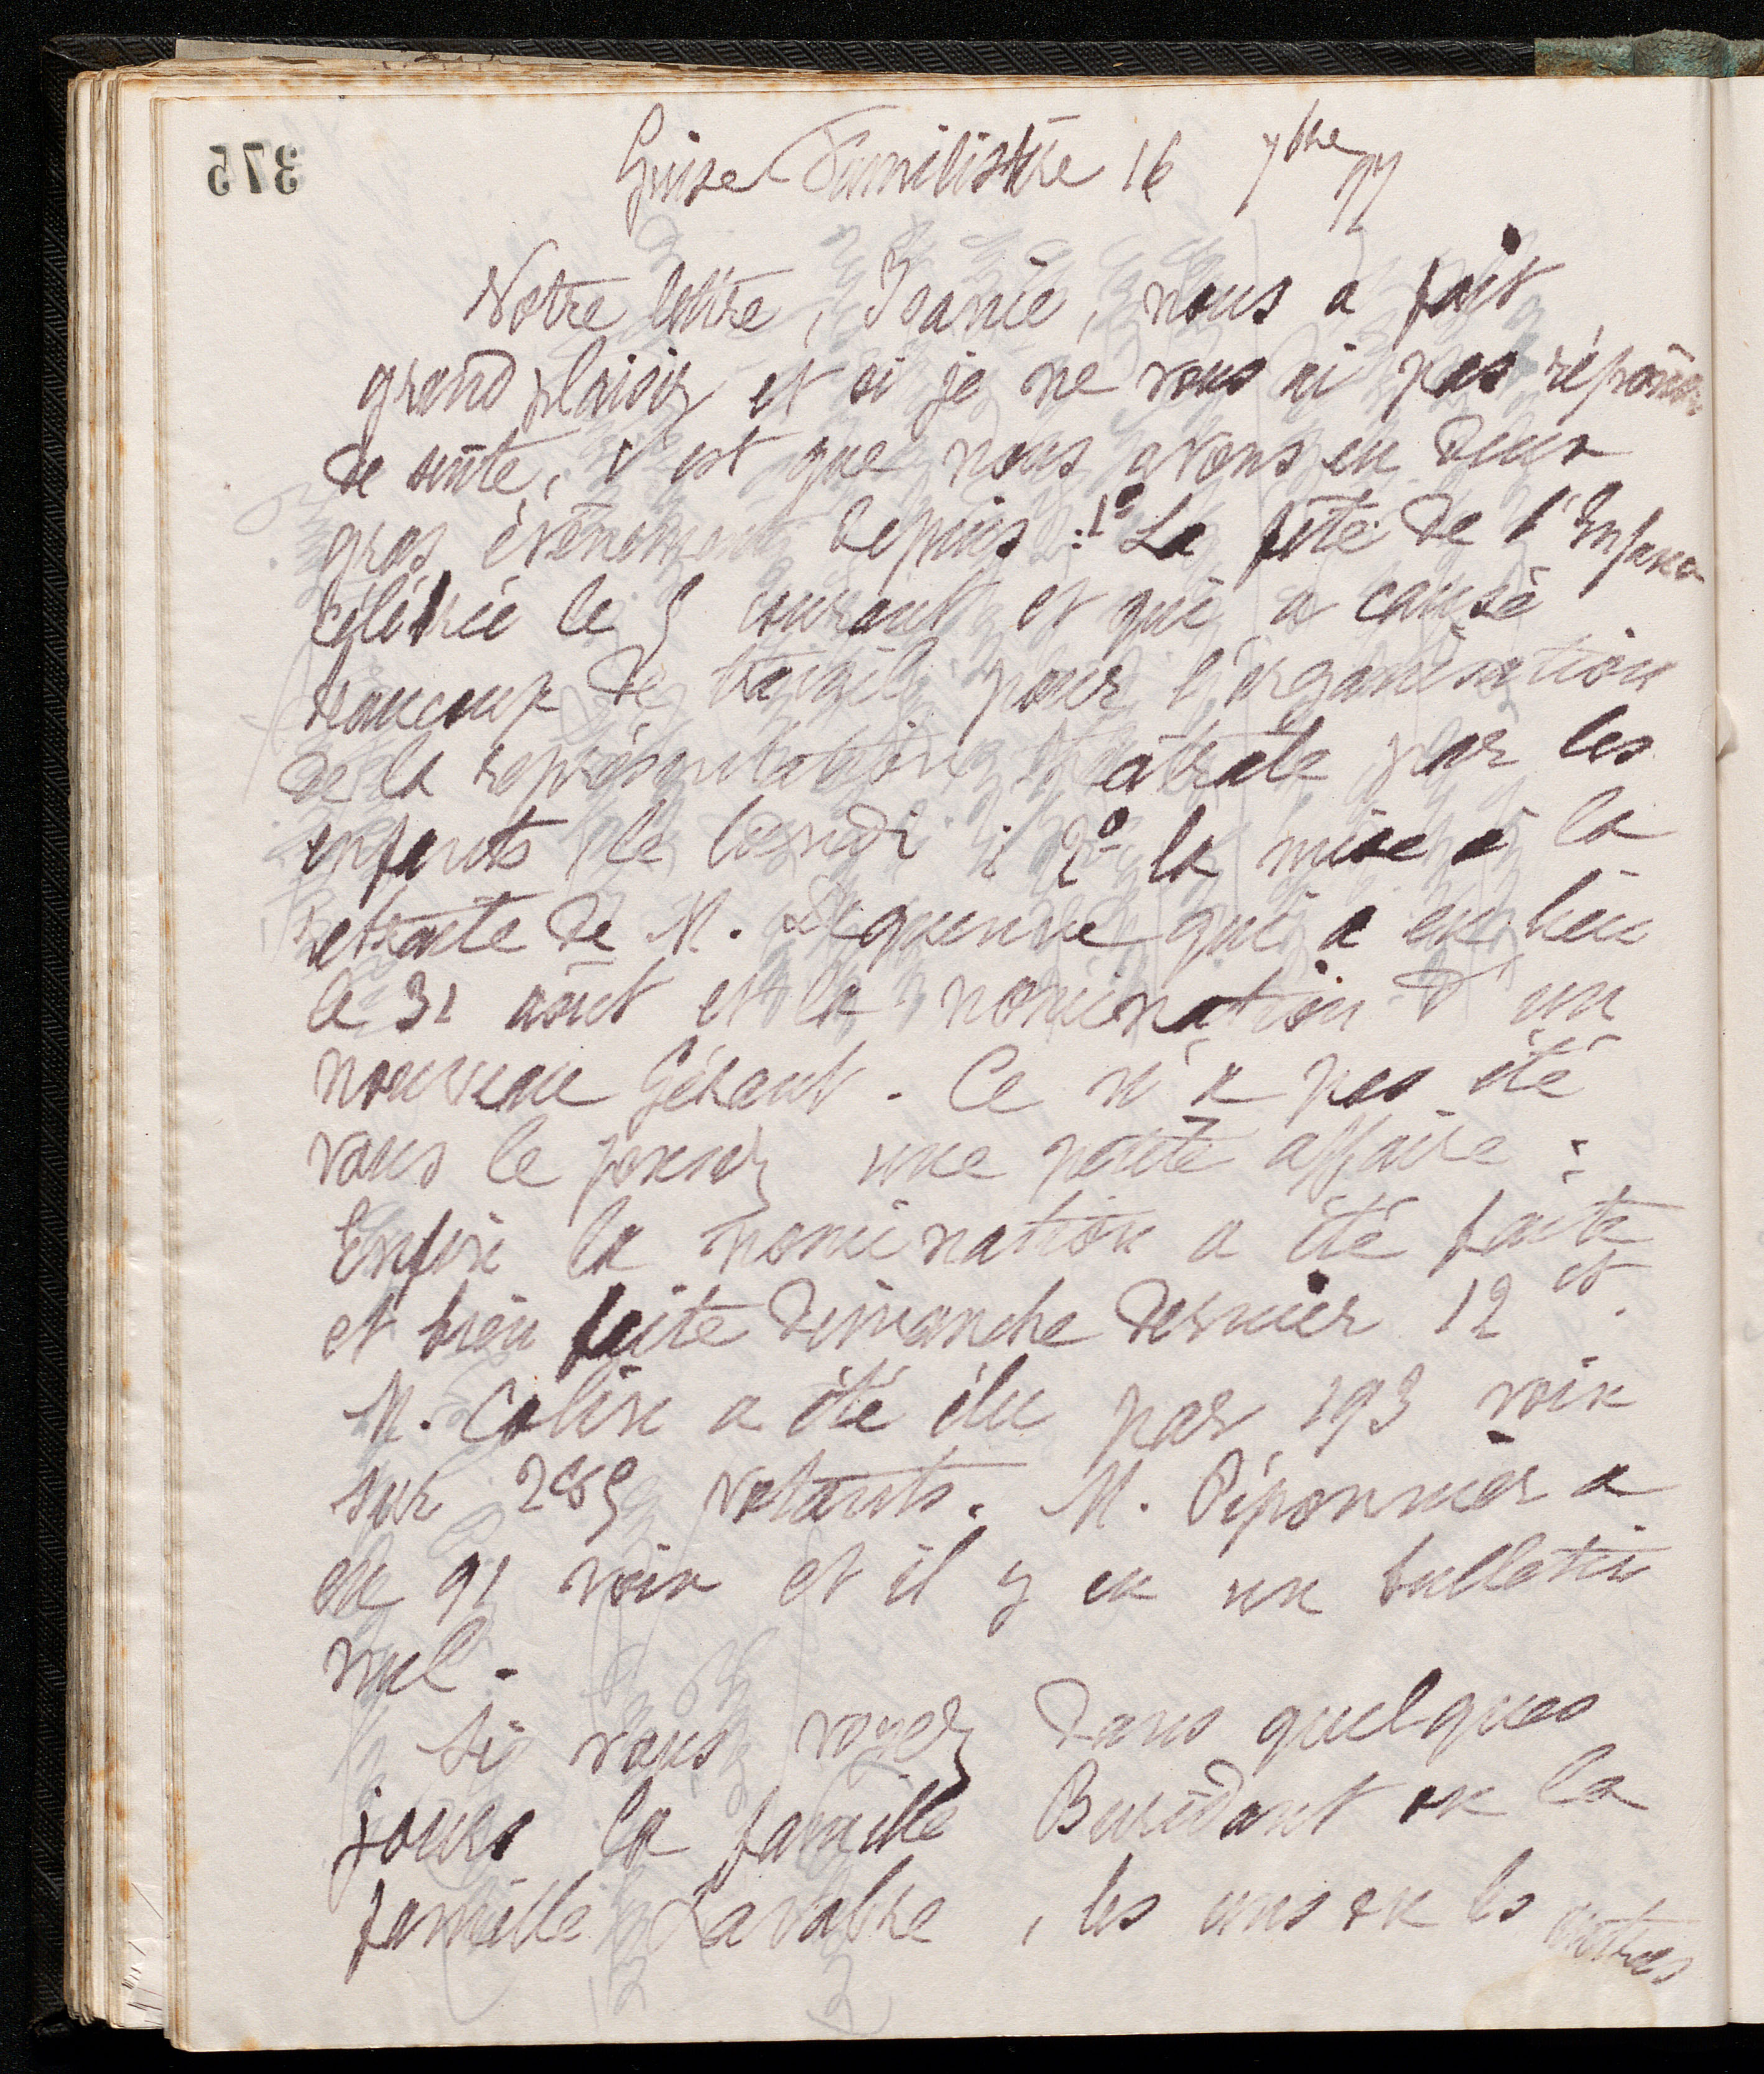 375
Guise Familistère 16 7bre 97
Votre lettre, Isanie, nous a fait
grand plaisir et si je ne vous ai pas répondu
de suite, c'est que nous avons eu deux
gros évènements depuis : 1º La fête de l'Enfance
célébrée le 5 courant et qui a causé
beaucoup de travail pour l'organisation
de la représentation théâtrale par les
enfants le lundi ; 2º la mise à la
retraite de M. Dequenne qui a eu lieu
le 31 août et la nomination d'un
nouveau Gérant. Ce n'a pas été
vous le pensez une petite affaire :
Enfin la nomination a été faite
et bien faite dimanche dernier 12 ct.
M. Colin a été élu par 193 voix
sur 285 votants. M. Piponnier a
eu 91 voix et il y eu un bulletin
nul.
Si vous voyez dans quelques
jours la famille Buridant ou la
famille , les uns ou les autres